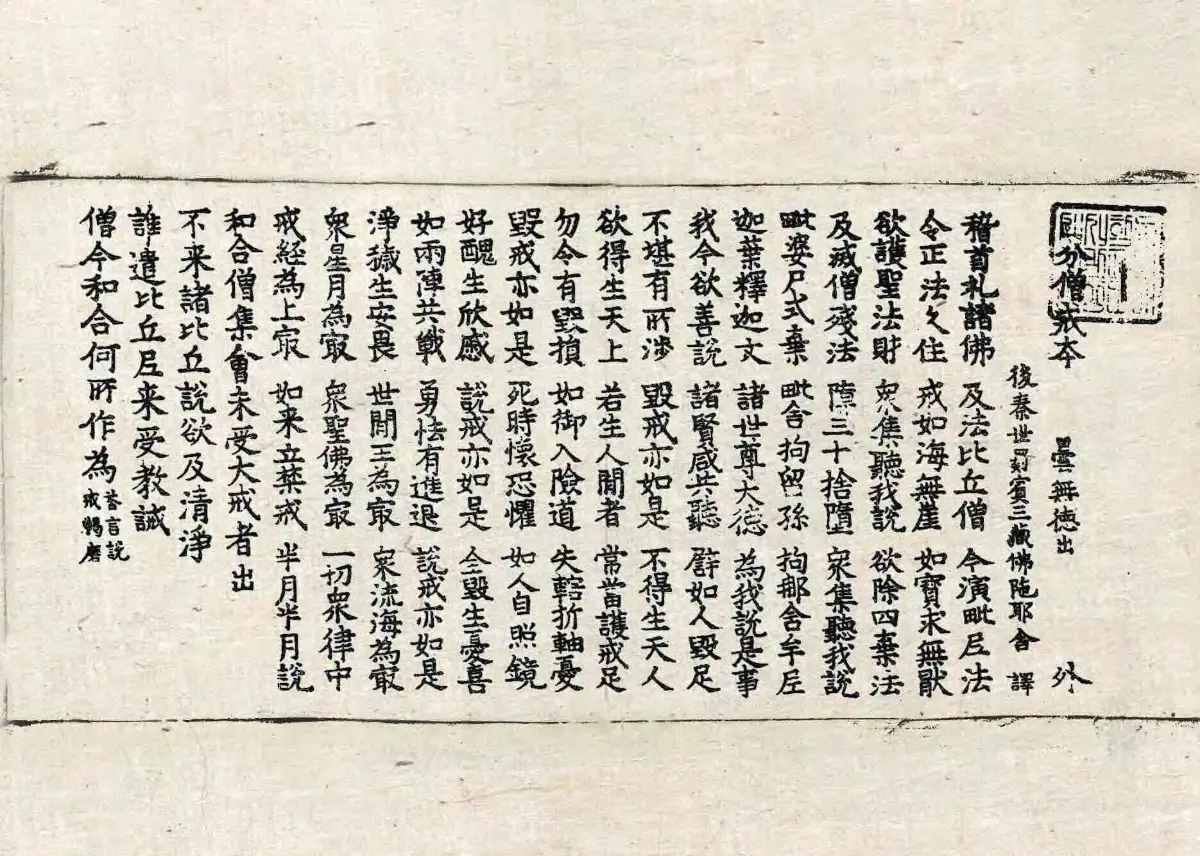 四分僧戒本 曇無德出 外
後秦世罽賓三藏佛陁耶舍譯
稽首礼諸佛 及法比丘僧 今演毗尼法
令正法久住 戒如海無崖 如寶求無猒
欲護聖法財 衆集聽我說 欲除四棄法
及滅僧殘法 障三十捨墮 衆集聽我說
毗婆尸式棄 毗舍拘留孫 拘那舍牟尼
迦葉釋迦文 諸世尊大德 為我說是事
我今欲善說 諸賢咸共聽 譬如人毀足
不堪有所涉 毀戒亦如是 不得生天人
欲得生天上 若生人間者 常當護戒足
勿令有毀損 如御入險道 失轄折軸憂
毀戒亦如是 死時懷恐懼 如人自照鏡
好醜生欣慼 說戒亦如是 全毀生憂喜
如兩陣共戰 勇怯有進退 說戒亦如是
淨穢生安畏 世間王為冣 衆流海為冣
衆星月為冣 衆聖佛為冣 一切衆律中
戒経為上冣 如来立禁戒 半月半月說
和合僧集會未受大戒者出
不来諸比丘說欲及清淨
誰遣比丘尼来受教誡
僧今和合何所作為 荅言說戒羯磨